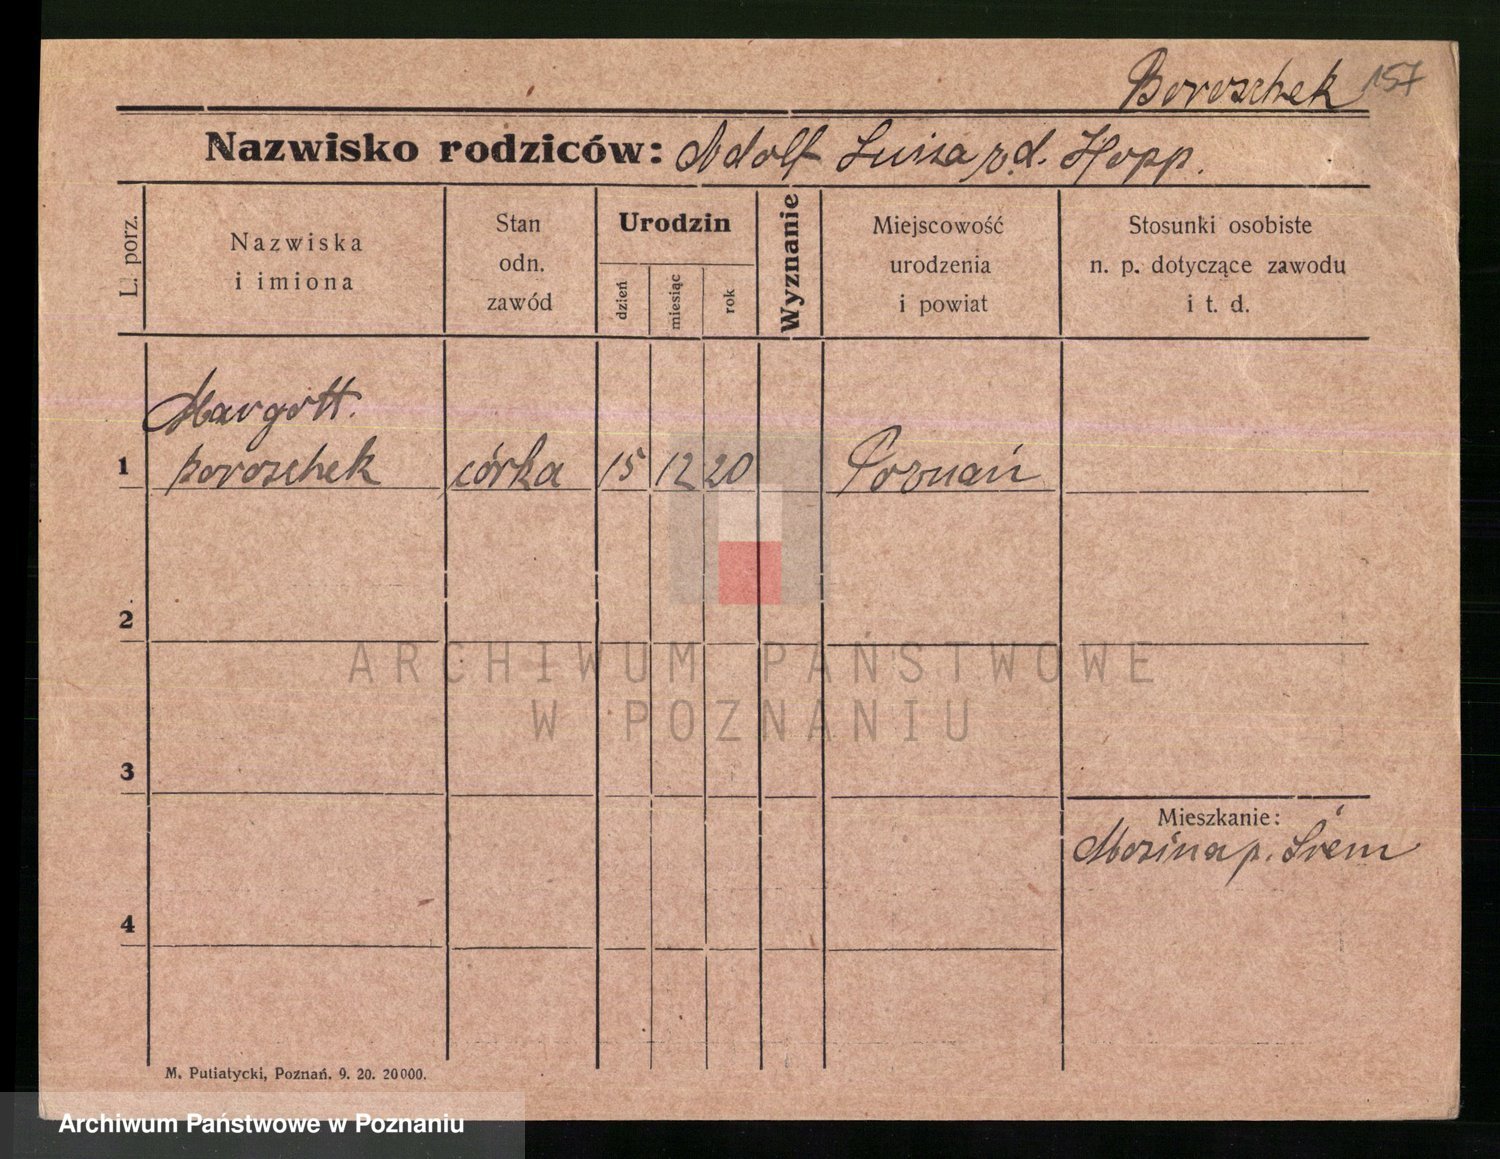 Boroschek 157
Nazwisko rodziców: Adolf Luisa r.d. Hopp.
L. porz.
Nazwiska
i imiona
Stan
odn.
zawód
Urodzin
dzień
miesiąc
rok
Wyznanie
Miejscowość
urodzenia
i powiat
Stosunki osobiste
n. p. dotyczące zawodu
i t. d.
Margott.
1 Boroschek córka 15 12 20 Poznań
2
ARCHIWUM PAŃSTWOWE
W POZNANIU
3
Mieszkanie:
Mosina p. Śrem
4
M. Putiatycki, Poznań. 9. 20. 20000.
Archiwum Państwowe w Poznaniu